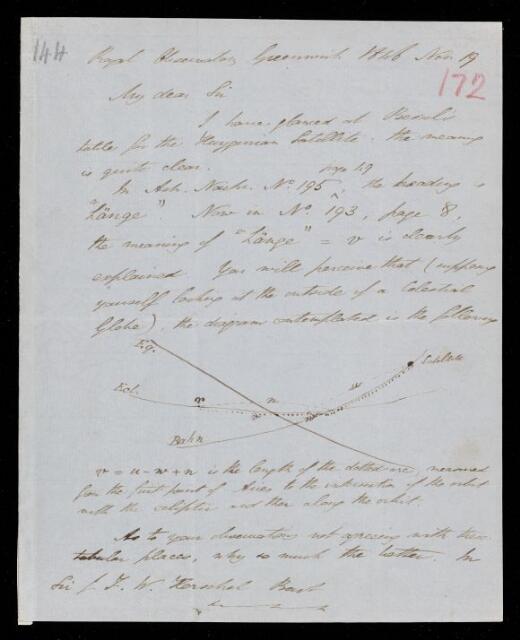 144
Royal Observatory Greenwich 1846 Nov 19
172
My dear Sir
I have glanced at Bessel's
table for the Huygenian Satellite. the meaning
is quite clear.
page 49
In Ast. Nachr. No. 195, the heading is
"Länge". Now in No. 193, page 8,
the meaning of "Länge" = v is clearly
explained. You will perceive that (supposing
yourself looking at the outside of a Celestial
Globe), the diagram contemplated is the following
Eq.
Satellite
Ecl.
♈
n
u
Bahn
v = u - w + n is the length of the dotted arc, measured
from the first point of Aries to the intersection of the orbit
with the ecliptic and then along the orbit.
As to your observations not agreeing with these
tabular places, why so much the better. In
Sir J. F. W. Herschel Bart